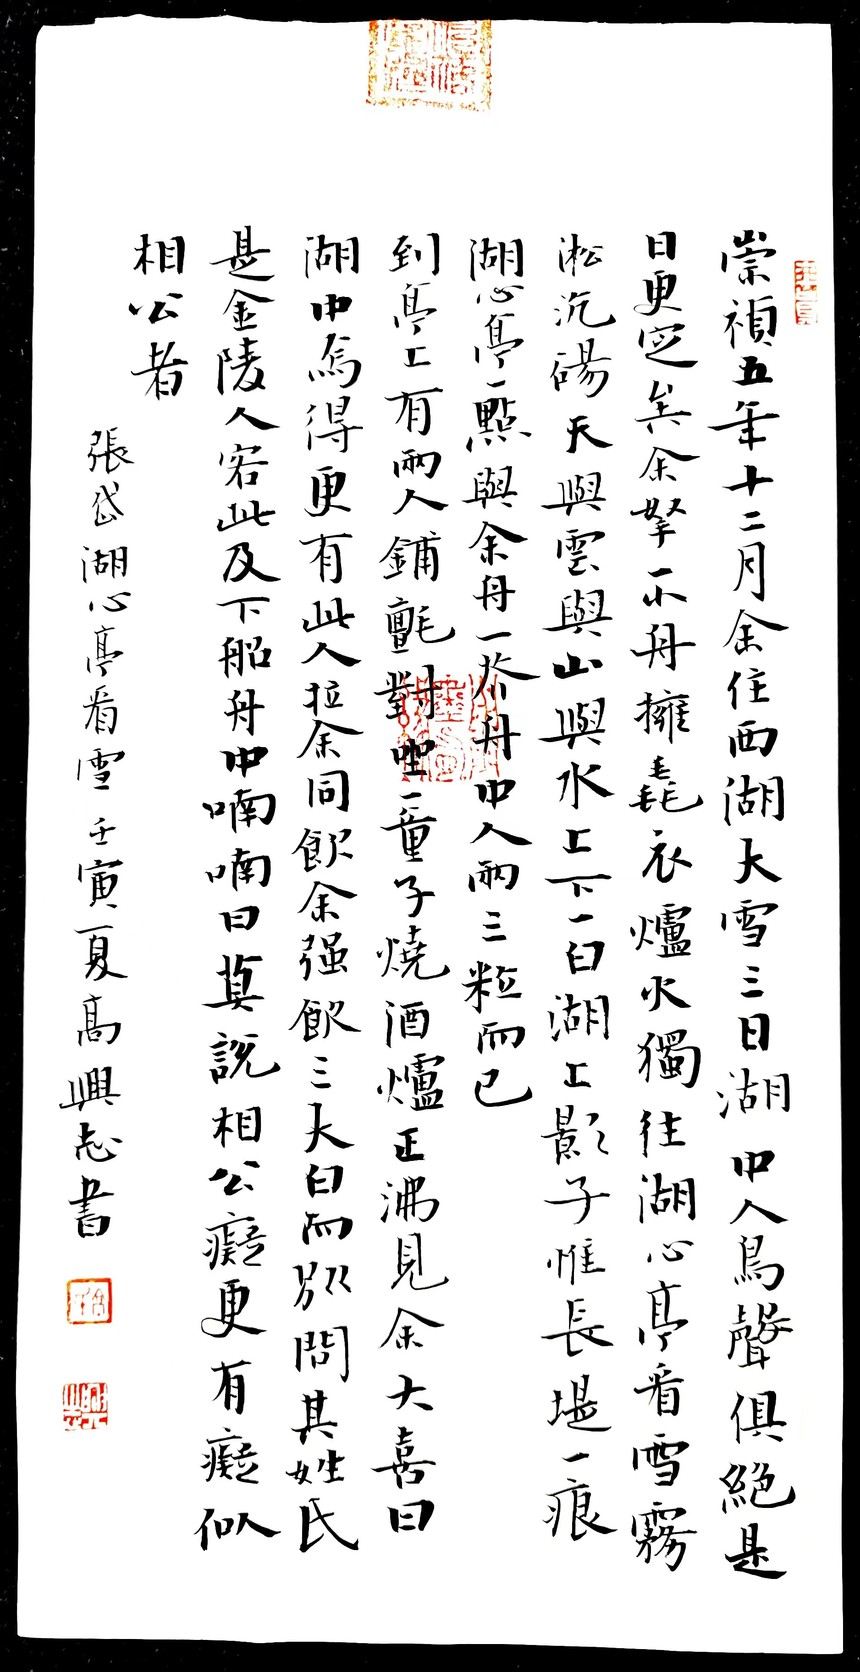 崇禎五年十二月余住西湖大雪三日湖中人鳥聲俱絕是
日更定矣余拏一小舟擁毳衣爐火獨往湖心亭看雪霧
淞沆碭天與雲與山與水上下一白湖上影子惟長堤一痕
湖心亭一點與余舟一芥舟中人兩三粒而已
到亭上有兩人鋪氈對坐一童子燒酒爐正沸見余大喜曰
湖中焉得更有此人拉余同飲余强飲三大白而別問其姓氏
是金陵人客此及下船舟中喃喃曰莫說相公癡更有癡似
相公者
張岱湖心亭看雪壬寅夏高興志書